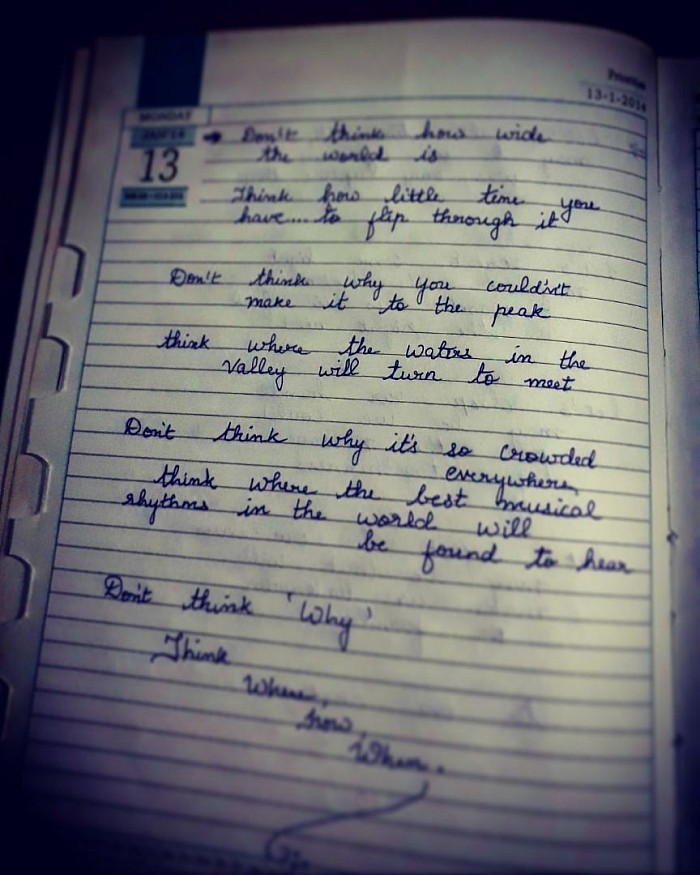 Priorities
13-1-2014
MONDAY
JAN'14
13
→ Don't think how wide
the world is
Think how little time you
have.... to flip through it
Don't think why you couldn't
make it to the peak
think where the waters in the
valley will turn to meet
Don't think why it's so crowded
everywhere,
think where the best musical
rhythms in the world will
be found to hear
Don't think 'Why'
Think
Where,
how,
When.